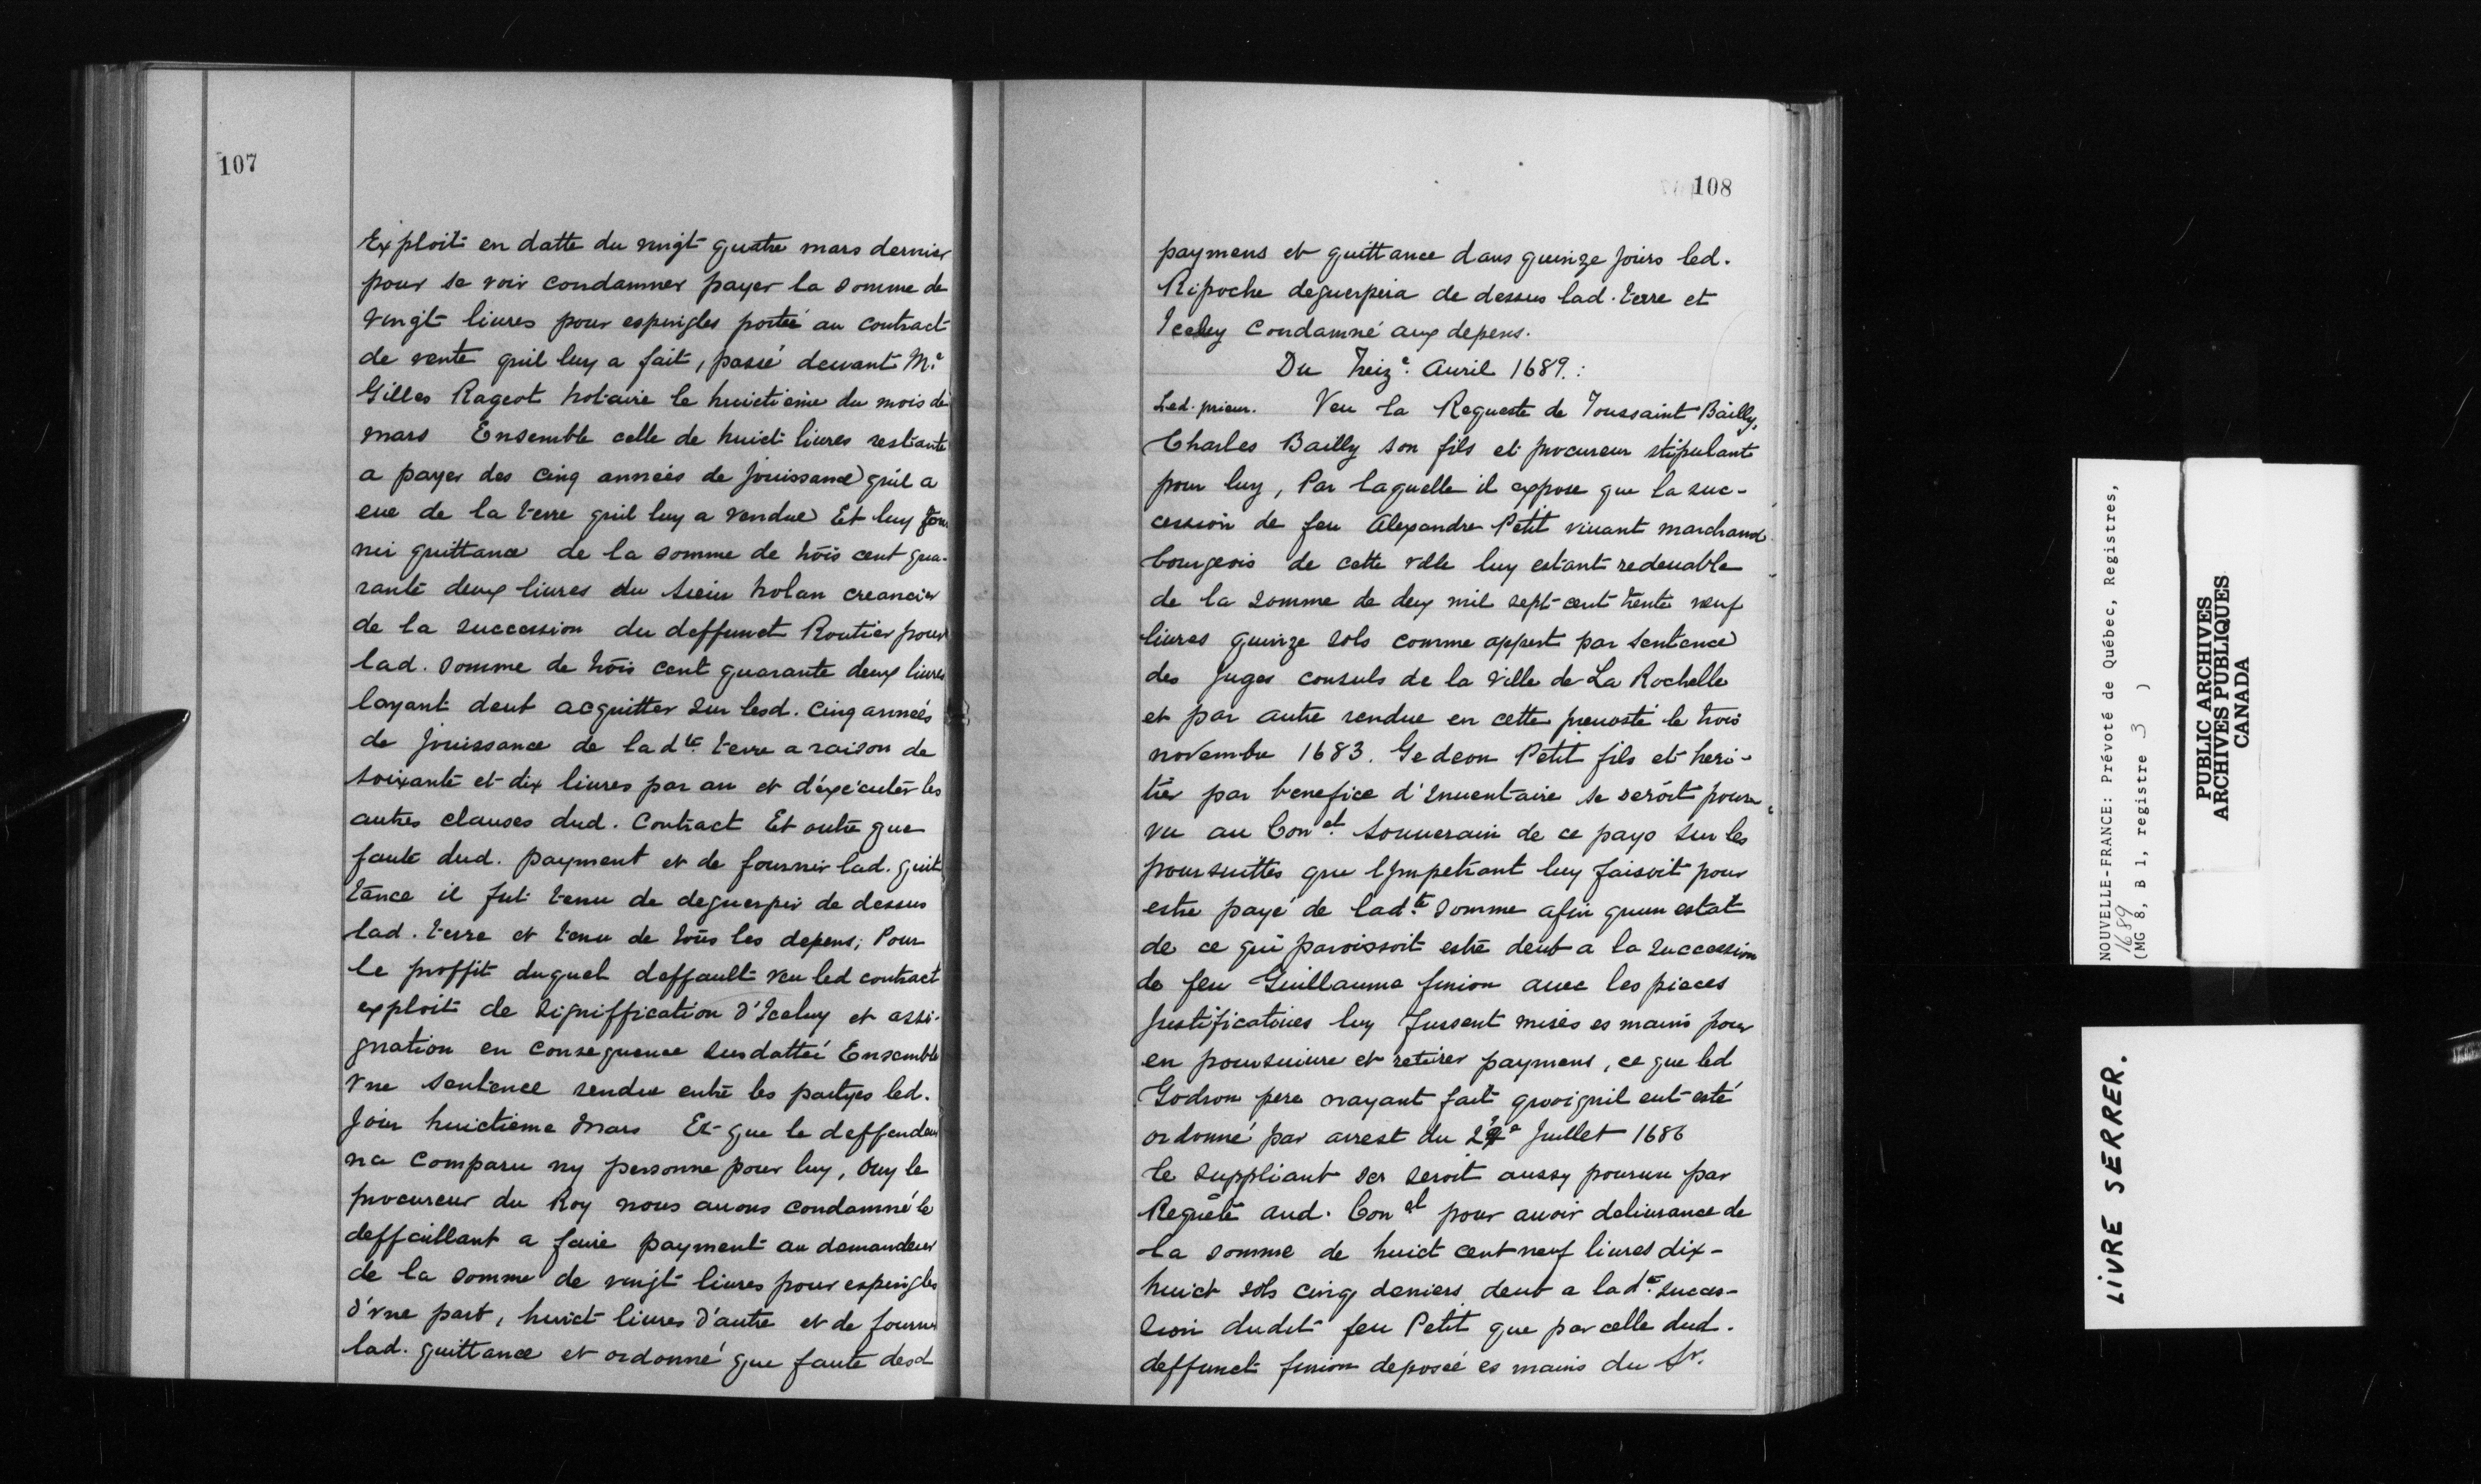 107
Exploit en datte du vingt quatre mars dernier
pour se voir condamner payer la somme de
vingt liures pour espingles portée au contract
de vente quil luy a fait, passé deuant Me
Gilles Rageot notaire le huictieme du mois de
mars Ensemble celle de huict liures restante
a payer des cinq années de jouissance quil a
eue de la terre quil luy a vendue Et luy four
nir quittance de la somme de trois cent qua-
rante deux liures du sieur nolan creancier
de la succession du deffunct Routier pour
lad. somme de trois cent quarante deux liures
layant deub acquitter sur lesd. cinq années
de jouissance de lad.te terre a raison de
soixante et dix liures par an et d'éxécuter les
autres clauses dud. Contract Et outre que
faute dud. payment et de fournir lad. quit
tance il fut tenu de deguerpir de dessus
lad. terre et tenu de tous les depens; Pour
le proffit duquel deffault veu led contract
exploit de signiffication d'Iceluy et assi-
gnation en consequence susdatteé Ensemble
vne sentence rendue entre les partyes led.
jour huictieme mars Et que le deffendeur
na comparu ny personne pour luy, ouy le
procureur du Roy nous auons condamné le
deffaillant a faire payment au demandeur
de la somme de vingt liures pour espingles
d'vne part, huict liures d'autre et de fournir
lad. quittance et ordonné que faute desd
108
paymens et quittance dans quinze jours led.
Ripoche deguerpira de dessus lad. terre et
Iceluy Condamné aux depens.
Du treize. Auril 1689.:
Led. prieur. Veu la Requeste de Toussaint Bailly,
Charles Bailly son fils et procureur stipulant
pour luy, Par laquelle il expose que la suc-
cession de feu Alexandre Petit viuant marchand
bourgeois de cette ville luy estant redeuable
de la somme de deux mil sept cent trente neuf
liures quinze sols comme appert par sentence
des juges consuls de la ville de La Rochelle
et par autre rendue en cette preuosté le trois
novembre 1683. Gedeon Petit fils et heri-
tier par benefice d'Inuentaire se seroit pour-
vu au Conel. souuerain de ce pays sur les
poursuittes que lympetrant luy faisoit pour
estre payé de lad.te somme afin quun estat
de ce qui paroissoit estre deub a la succession
de feu Guillaume finion auec les pieces
justificatoires luy fussent mises es mains pour
en poursuiure et retirer paymens, ce que led
Godron pere nayant fait quoi quil eut esté
ordonné par arrest du Juillet 1686
le suppliant ser seroit aussy pourueu par
Requête aud. Conel pour auoir deliurance de
la somme de huict cent neuf liures dix-
huict sols cinq deniers deub a lad.te succes-
sion dudit feu Petit que par celle dud.
deffunct finion deposée es mains du Sr.
NOUVELLE-FRANCE: Prévoté de Québec, Registres,
1689
(MG 8, B 1, registre 3 )
PUBLIC ARCHIVES
ARCHIVES PUBLIQUES
CANADA
LIVRE SERRER.